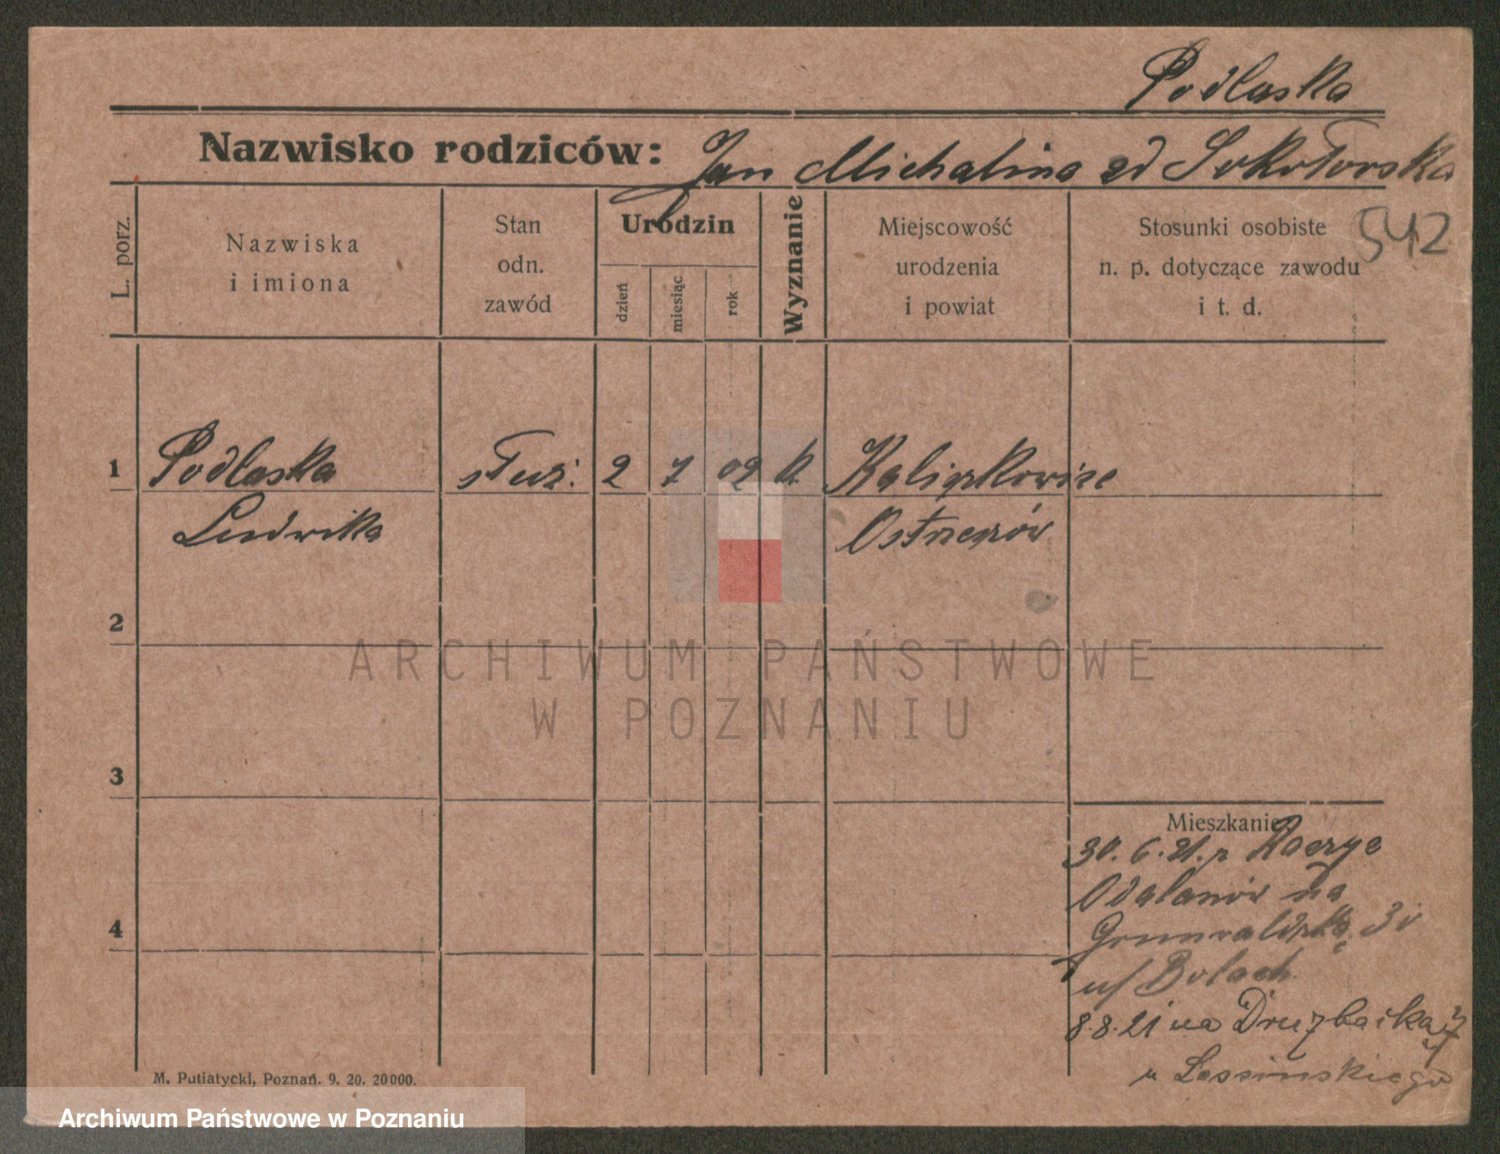 Podlaska
Nazwisko rodziców: Jan Michalina zd Sokołorska
L. porz.
Nazwiska i imiona
Stan odn. zawód
Urodzin
dzień
miesiąc
rok
Wyznanie
Miejscowość urodzenia i powiat
Stosunki osobiste n. p. dotyczące zawodu i t. d.
542
1 Podlaska służ. 2 7 02 k. Kaliszkowice
Ludwika Ostrzeszów
2
3
4
Mieszkanie
30. 6. 21. z Raczyc
Odalanów na
Grunwaldzką
u/ Bolach
8.8.21 na Druzbacką
u Lessińskiego
M. Putiatycki, Poznań. 9. 20. 20000.
ARCHIWUM PAŃSTWOWE
W POZNANIU
Archiwum Państwowe w Poznaniu